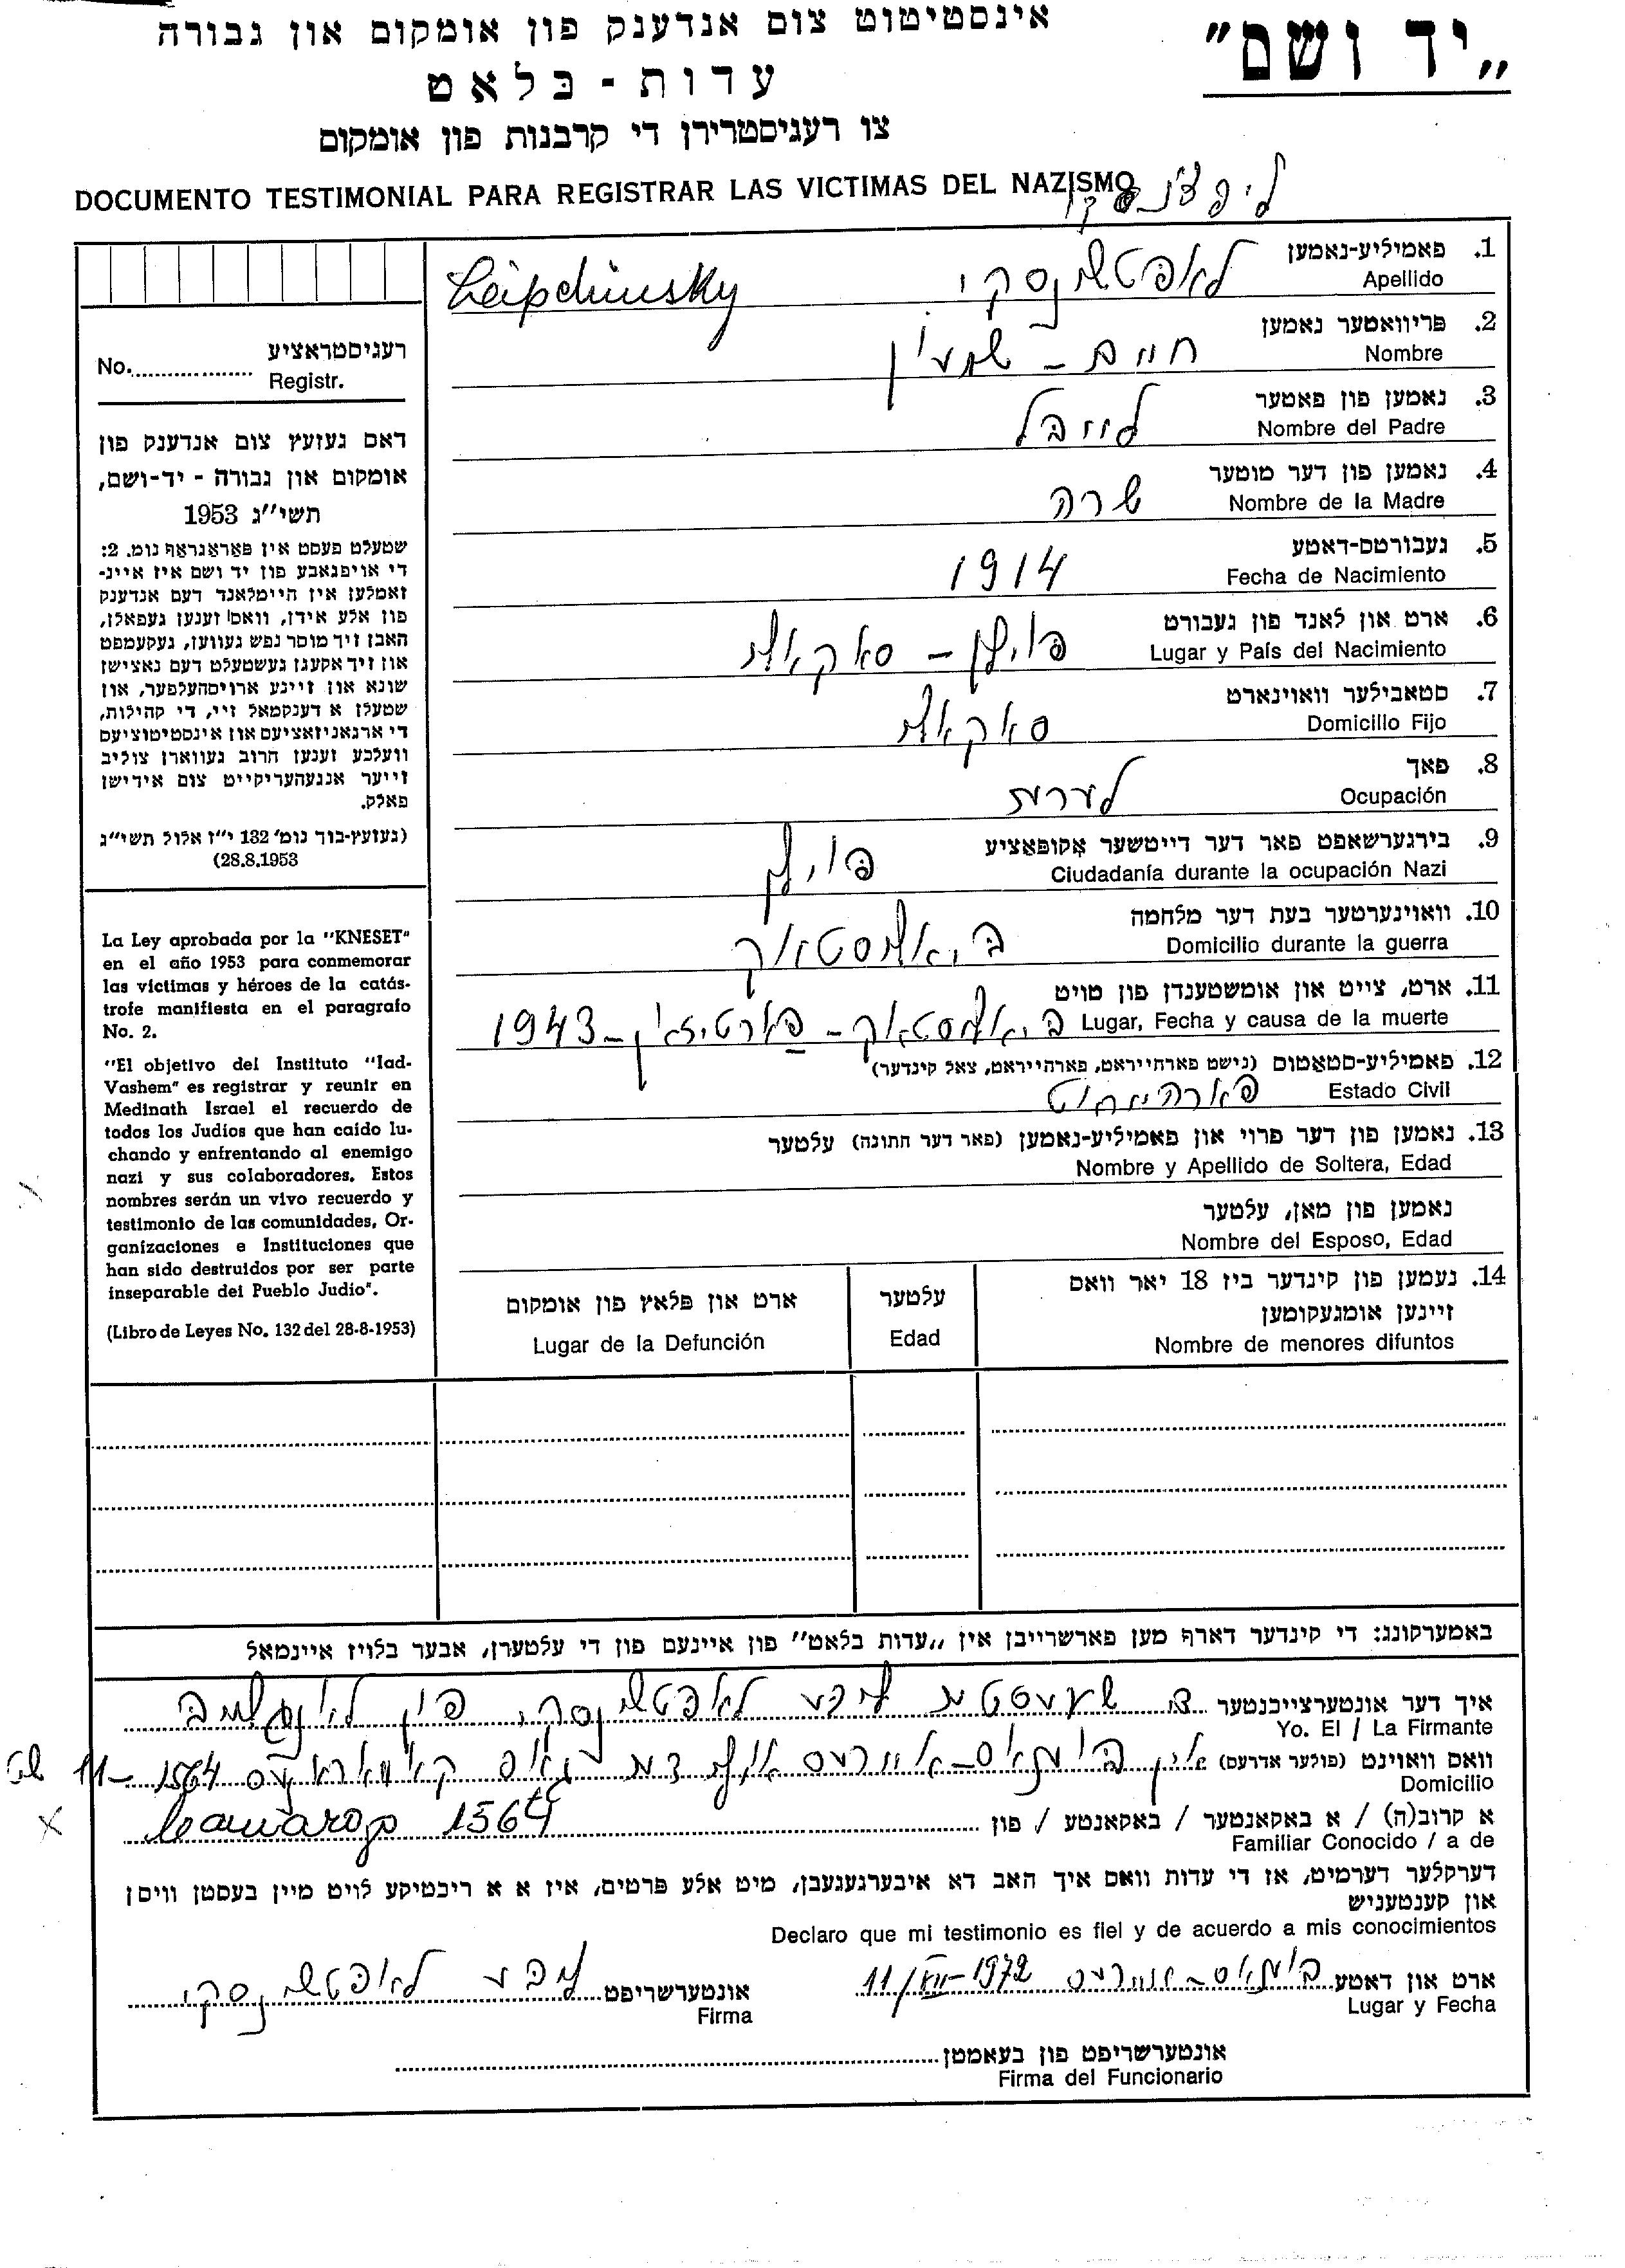 „יד ושם"
אינסטיטוט צום אנדענק פון אומקום און גבורה
עדות - בלאט
צו רעגיסטרירן די קרבנות פון אומקום
DOCUMENTO TESTIMONIAL PARA REGISTRAR LAS VICTIMAS DEL NAZISMO
.1 פאמיליע-נאמען
Apellido
Leipchinsky
.2 פריוואטער נאמען
Nombre
חיים - שמעון
.3 נאמען פון פאטער
Nombre del Padre
לייבל
.4 נאמען פון דער מוטער
Nombre de la Madre
שרה
.5 געבורטס-דאטע
Fecha de Nacimiento
1914
.6 ארט און לאנד פון געבורט
Lugar y País del Nacimiento
פוילן -
.7 סטאבילער וואוינארט
Domicilio Fijo
.8 פאך
Ocupación
.9 בירגערשאפט פאר דער דייטשער אקופאציע
Ciudadanía durante la ocupación Nazi
פוילן
.10 וואוינערטער בעת דער מלחמה
Domicilio durante la guerra
ביאליסטאק
.11 ארט, צייט און אומשטענדן פון טויט
Lugar, Fecha y causa de la muerte
ביאליסטאק - פארטיזאן - 1943
.12 פאמיליע-סטאטוס (נישט פארהייראט, פארהייראט, צאל קינדער)
Estado Civil
פארהייראט
.13 נאמען פון דער פרוי און פאמיליע-נאמען (פאר דער חתונה) עלטער
Nombre y Apellido de Soltera, Edad
נאמען פון מאן, עלטער
Nombre del Esposo, Edad
.14 נעמען פון קינדער ביז 18 יאר וואס
זיינען אומגעקומען
Nombre de menores difuntos
עלטער
Edad
ארט און פלאץ פון אומקום
Lugar de la Defunción
רעגיסטראציע
No. Registr.
דאס געזעץ צום אנדענק פון
אומקום און גבורה - יד-ושם,
תשי"ג 1953
שטעלט פעסט אין פאראגראף נומ. 2:
די אויפגאבע פון יד ושם איז איינ-
זאמלען אין היימלאנד דעם אנדענק
פון אלע אידן, וואס זענען געפאלן,
האבן זיך מוסר נפש געווען, געקעמפט
און זיך אקעגן געשטעלט דעם נאצישן
שונא און זיינע ארויסהעלפער, און
שטעלן א דענקמאל זיי, די קהילות,
די ארגאניזאציעס און אינסטיטוציעס
וועלכע זענען חרוב געווארן צוליב
זייער אנגעהעריקייט צום אידישן
פאלק.
(געזעץ-בוך נומ' 132 י"ז אלול תשי"ג
28.8.1953)
La Ley aprobada por la "KNESET"
en el año 1953 para conmemorar
las víctimas y héroes de la catás-
trofe manifiesta en el paragrafo
No. 2.
"El objetivo del Instituto "Iad-
Vashem" es registrar y reunir en
Medinath Israel el recuerdo de
todos los Judíos que han caído lu-
chando y enfrentando al enemigo
nazi y sus colaboradores. Estos
nombres serán un vivo recuerdo y
testimonio de las comunidades, Or-
ganizaciones e Instituciones que
han sido destruidos por ser parte
inseparable del Pueblo Judío".
(Libro de Leyes No. 132 del 28-8-1953)
באמערקונג: די קינדער דארף מען פארשרייבן אין „עדות בלאט" פון איינעם פון די עלטערן, אבער בלויז איינמאל
איך דער אונטערצייכנטער
Yo. El / La Firmante
וואס וואוינט (פולער אדרעס) אין
Domicilio
1564
א קרוב(ה) / א באקאנטער / באקאנטע / פון
Familiar Conocido / a de
1564
דערקלער דערמיט, אז די עדות וואס איך האב דא איבערגעגעבן, מיט אלע פרטים, איז א א ריכטיקע לויט מיין בעסטן וויסן
און קענטעניש
Declaro que mi testimonio es fiel y de acuerdo a mis conocimientos
ארט און דאטע 11/XII-1972
Lugar y Fecha
אונטערשריפט
Firma
אונטערשריפט פון בעאמטן
Firma del Funcionario